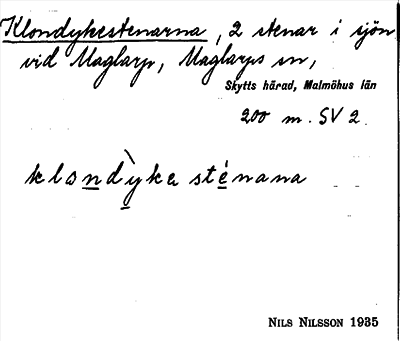 Klondykestenarna, 2 stenar i sjön
vid Maglarp, Maglarps sn,
Skytts härad, Malmöhus län
200 m. SV 2.
klondỳka sténana
NILS NILSSON 1935